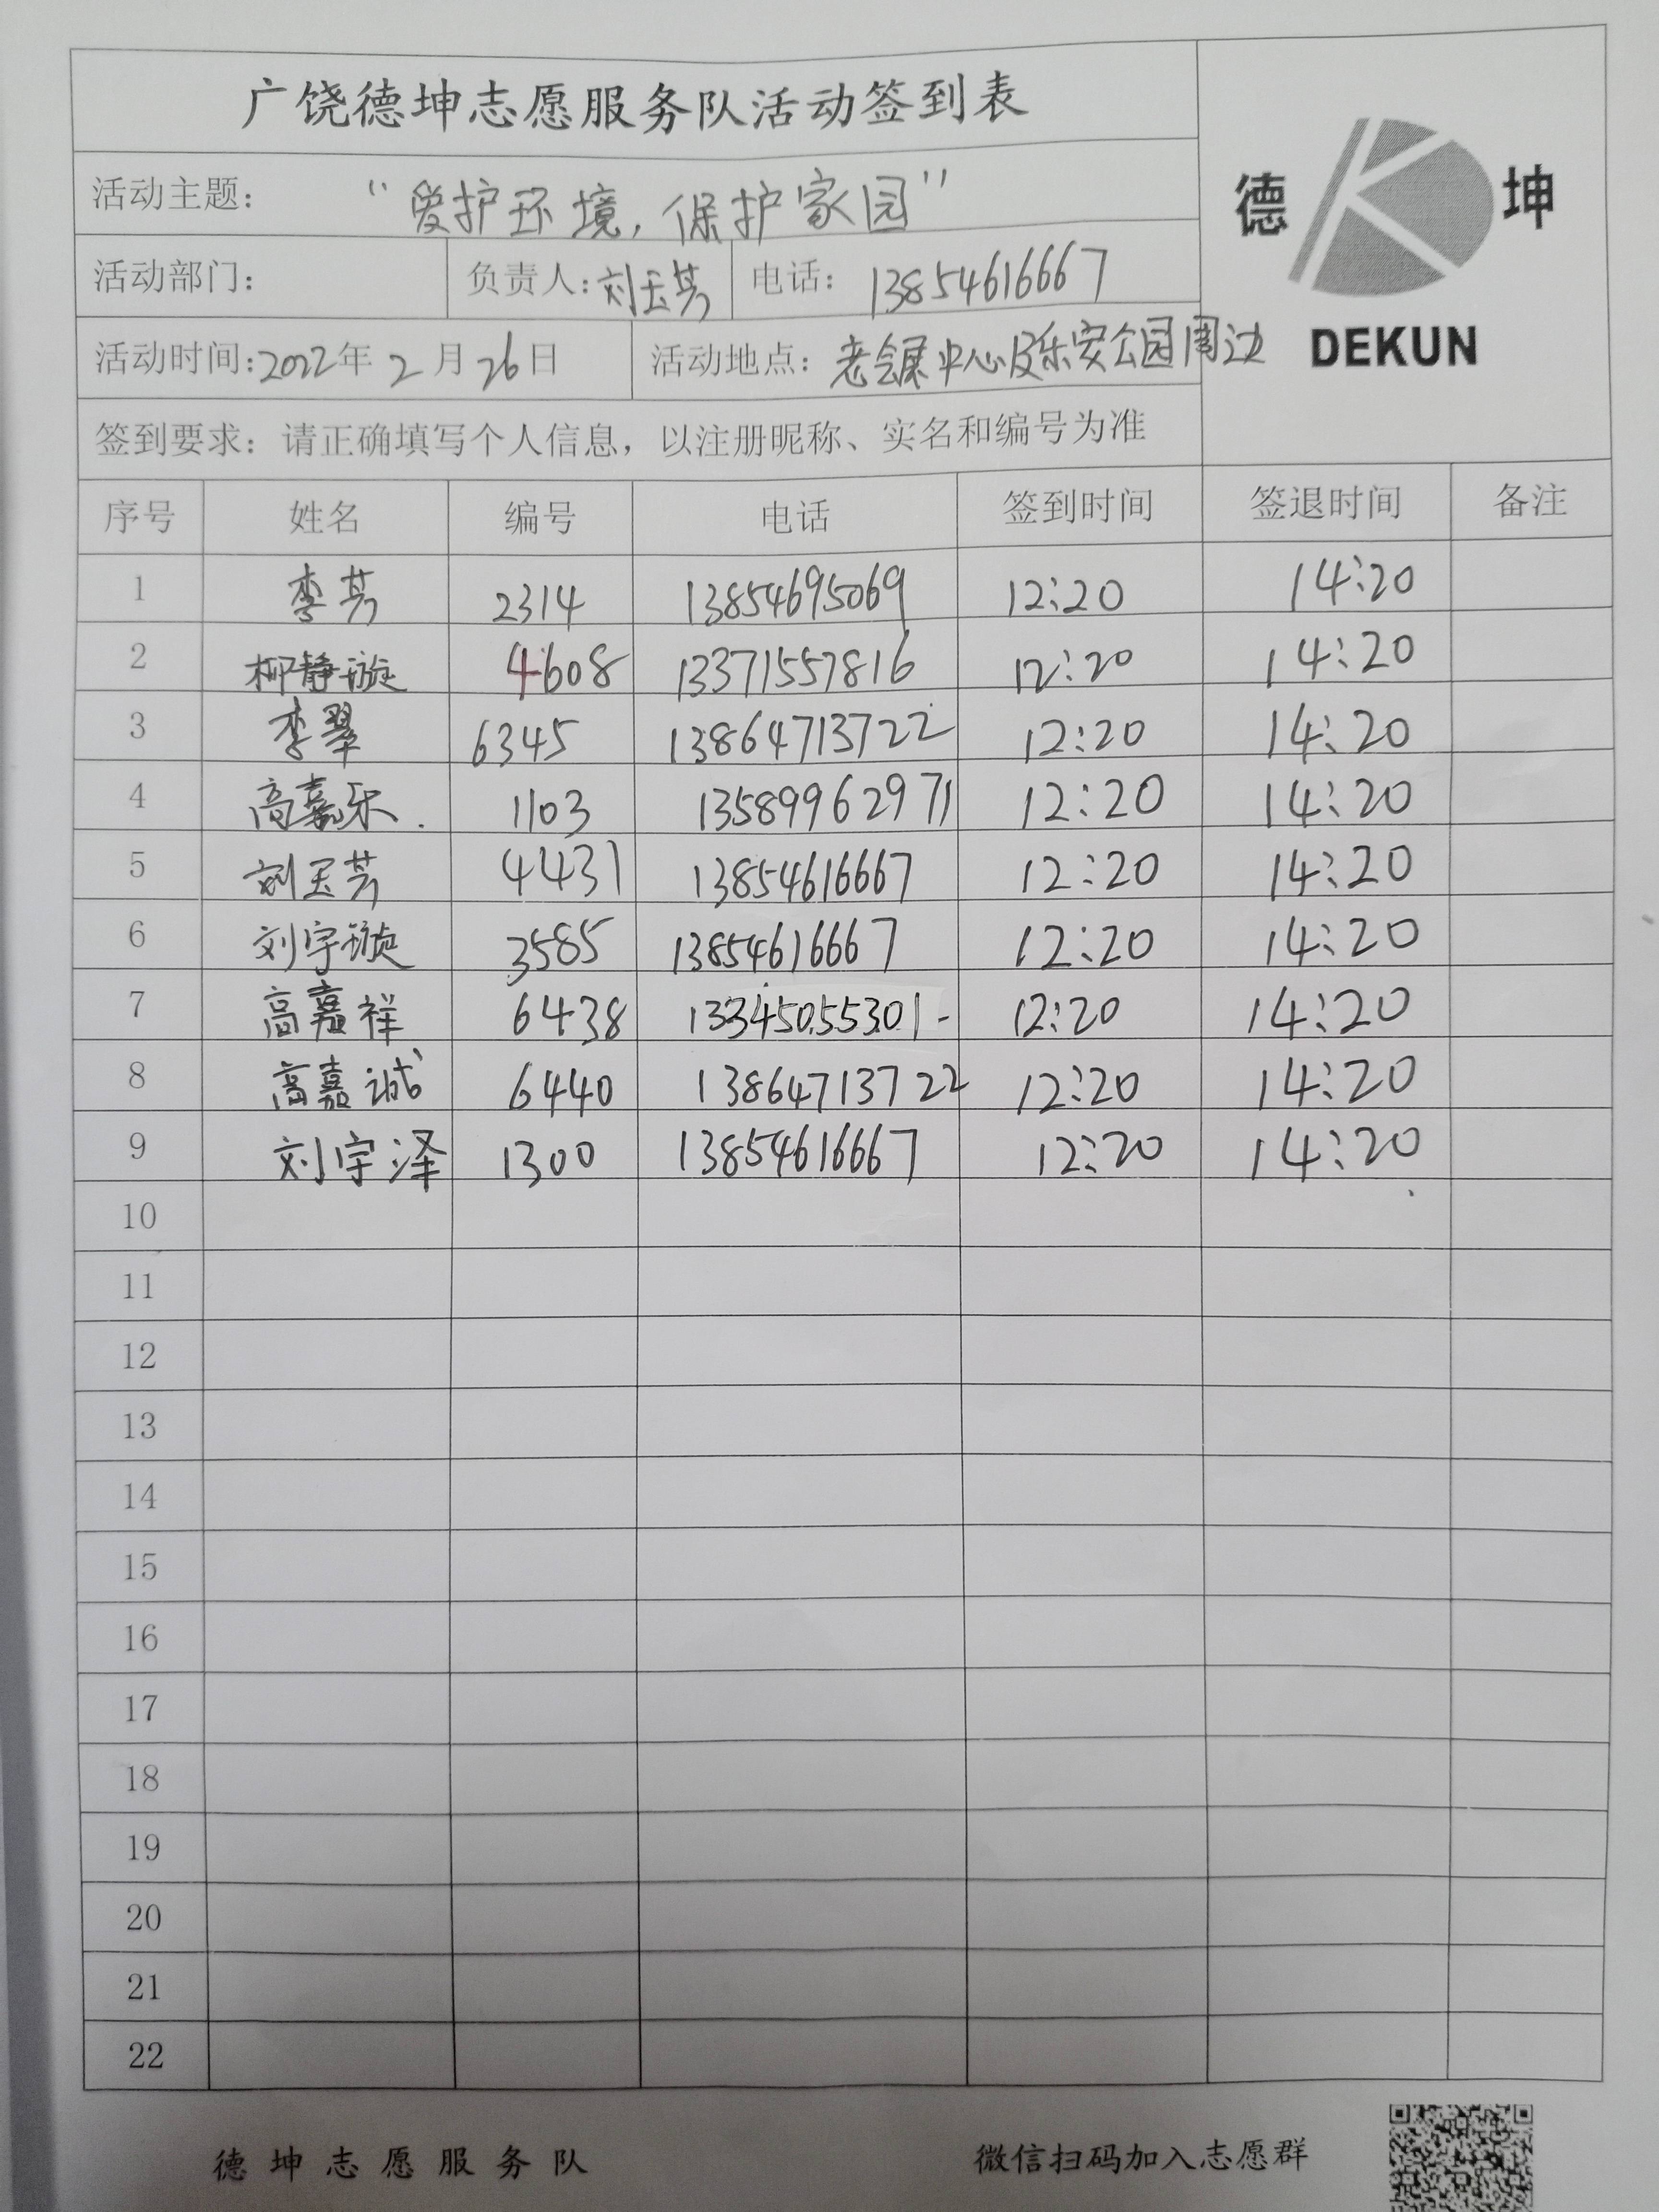 广饶德坤志愿服务队活动签到表
德 坤
DEKUN
活动主题： “爱护环境，保护家园”
活动部门： 负责人：刘玉芳 电话：13854616667
活动时间：2022年2月26日 活动地点：老会展中心及乐安公园周边
签到要求：请正确填写个人信息，以注册昵称、实名和编号为准
序号 姓名 编号 电话 签到时间 签退时间 备注
1 李芳 2314 13854695069 12:20 14:20
2 柳静璇 4608 13371557816 12:20 14:20
3 李翠 6345 13864713722 12:20 14:20
4 高嘉乐. 1103 13589962971 12:20 14:20
5 刘玉芳 4431 13854616667 12:20 14:20
6 刘宇璇 3585 13854616667 12:20 14:20
7 高嘉祥 6438 13345055301 12:20 14:20
8 高嘉诚 6440 13864713722 12:20 14:20
9 刘宇泽 1300 13854616667 12:20 14:20
10
11
12
13
14
15
16
17
18
19
20
21
22
德坤志愿服务队 微信扫码加入志愿群